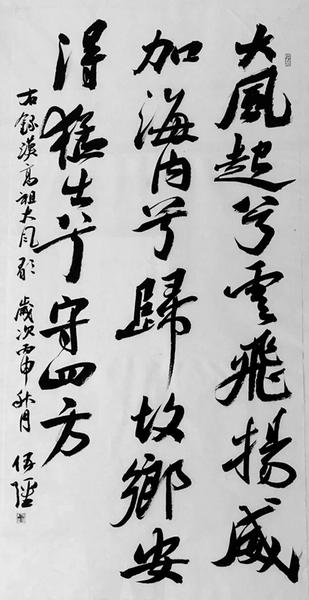 大風起兮雲飛揚威
加海内兮歸故鄉安
得猛士兮守四方
右錄漢高祖大風歌 歲次丙申秋月